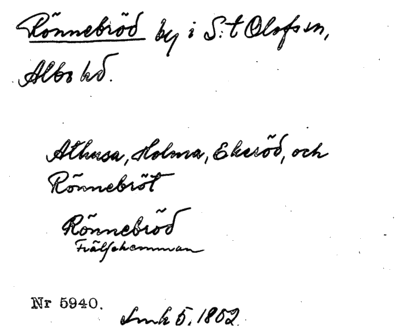 Rönnebröd by i S:t Olofs sn,
Albo hd.
Athusa, Holma, Ekeröd, och
Rönnebröt
Rönnebröd
Frälsehemman
Nr 5940.
Lmk 5, 1852